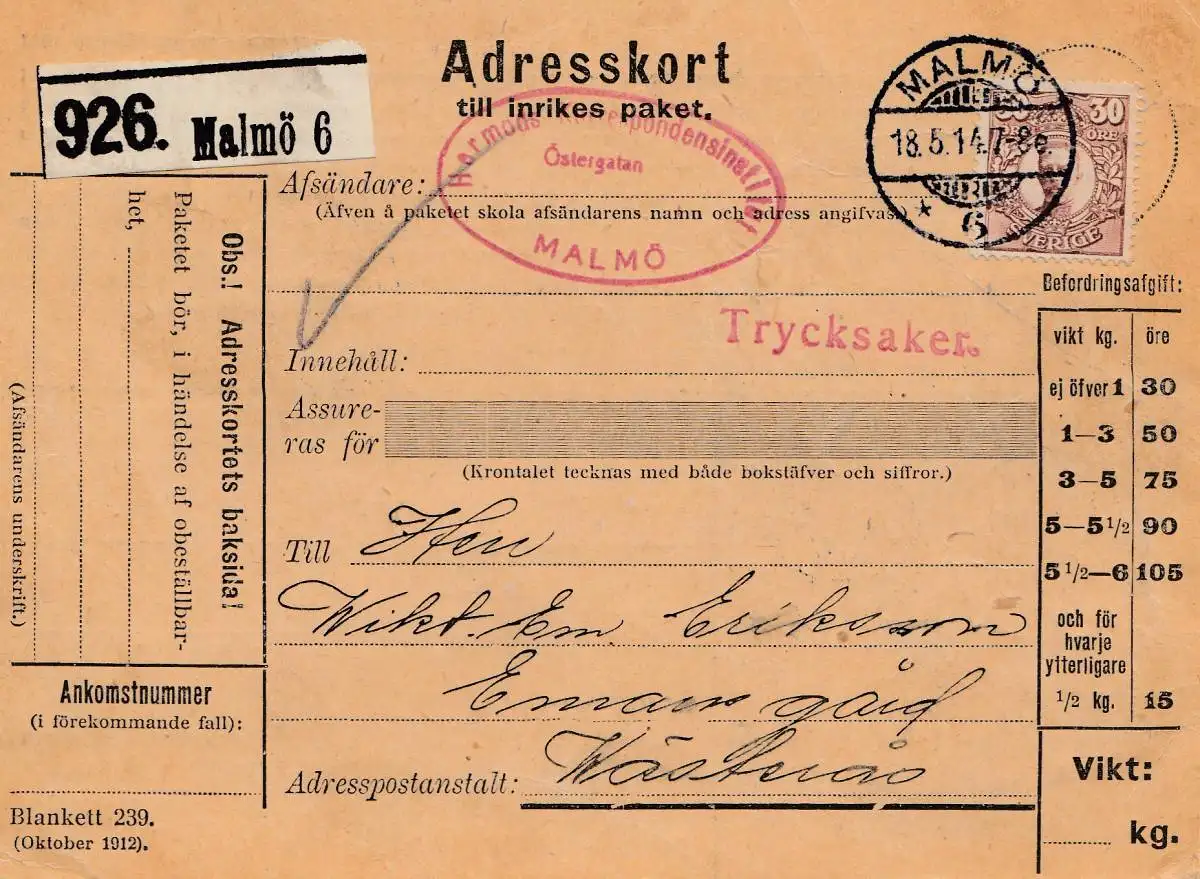 Adresskort
till inrikes paket.
926. Malmö 6
MALMÖ
18.5.14.7-8e.
* 6
30
ÖRE
SVERIGE
Hermods Korrespondensinstitut
Östergatan
MALMÖ
Afsändare:
(Äfven å paketet skola afsändarens namn och adress angifvas.)
Obs.! Adresskortets baksida!
Paketet bör, i händelse af obeställbar-
het,
(Afsändarens underskrift.)
Trycksaker.
Innehåll:
Assure-
ras för
(Krontalet tecknas med både bokstäfver och siffror.)
Till Herr
Wikt. Em Eriksson
Emaus gård
Adresspostanstalt: Wästerås
Befordringsafgift:
vikt kg. öre
ej öfver 1 30
1—3 50
3—5 75
5—5 1/2 90
5 1/2—6 105
och för
hvarje
ytterligare
1/2 kg. 15
Vikt:
kg.
Ankomstnummer
(i förekommande fall):
Blankett 239.
(Oktober 1912).